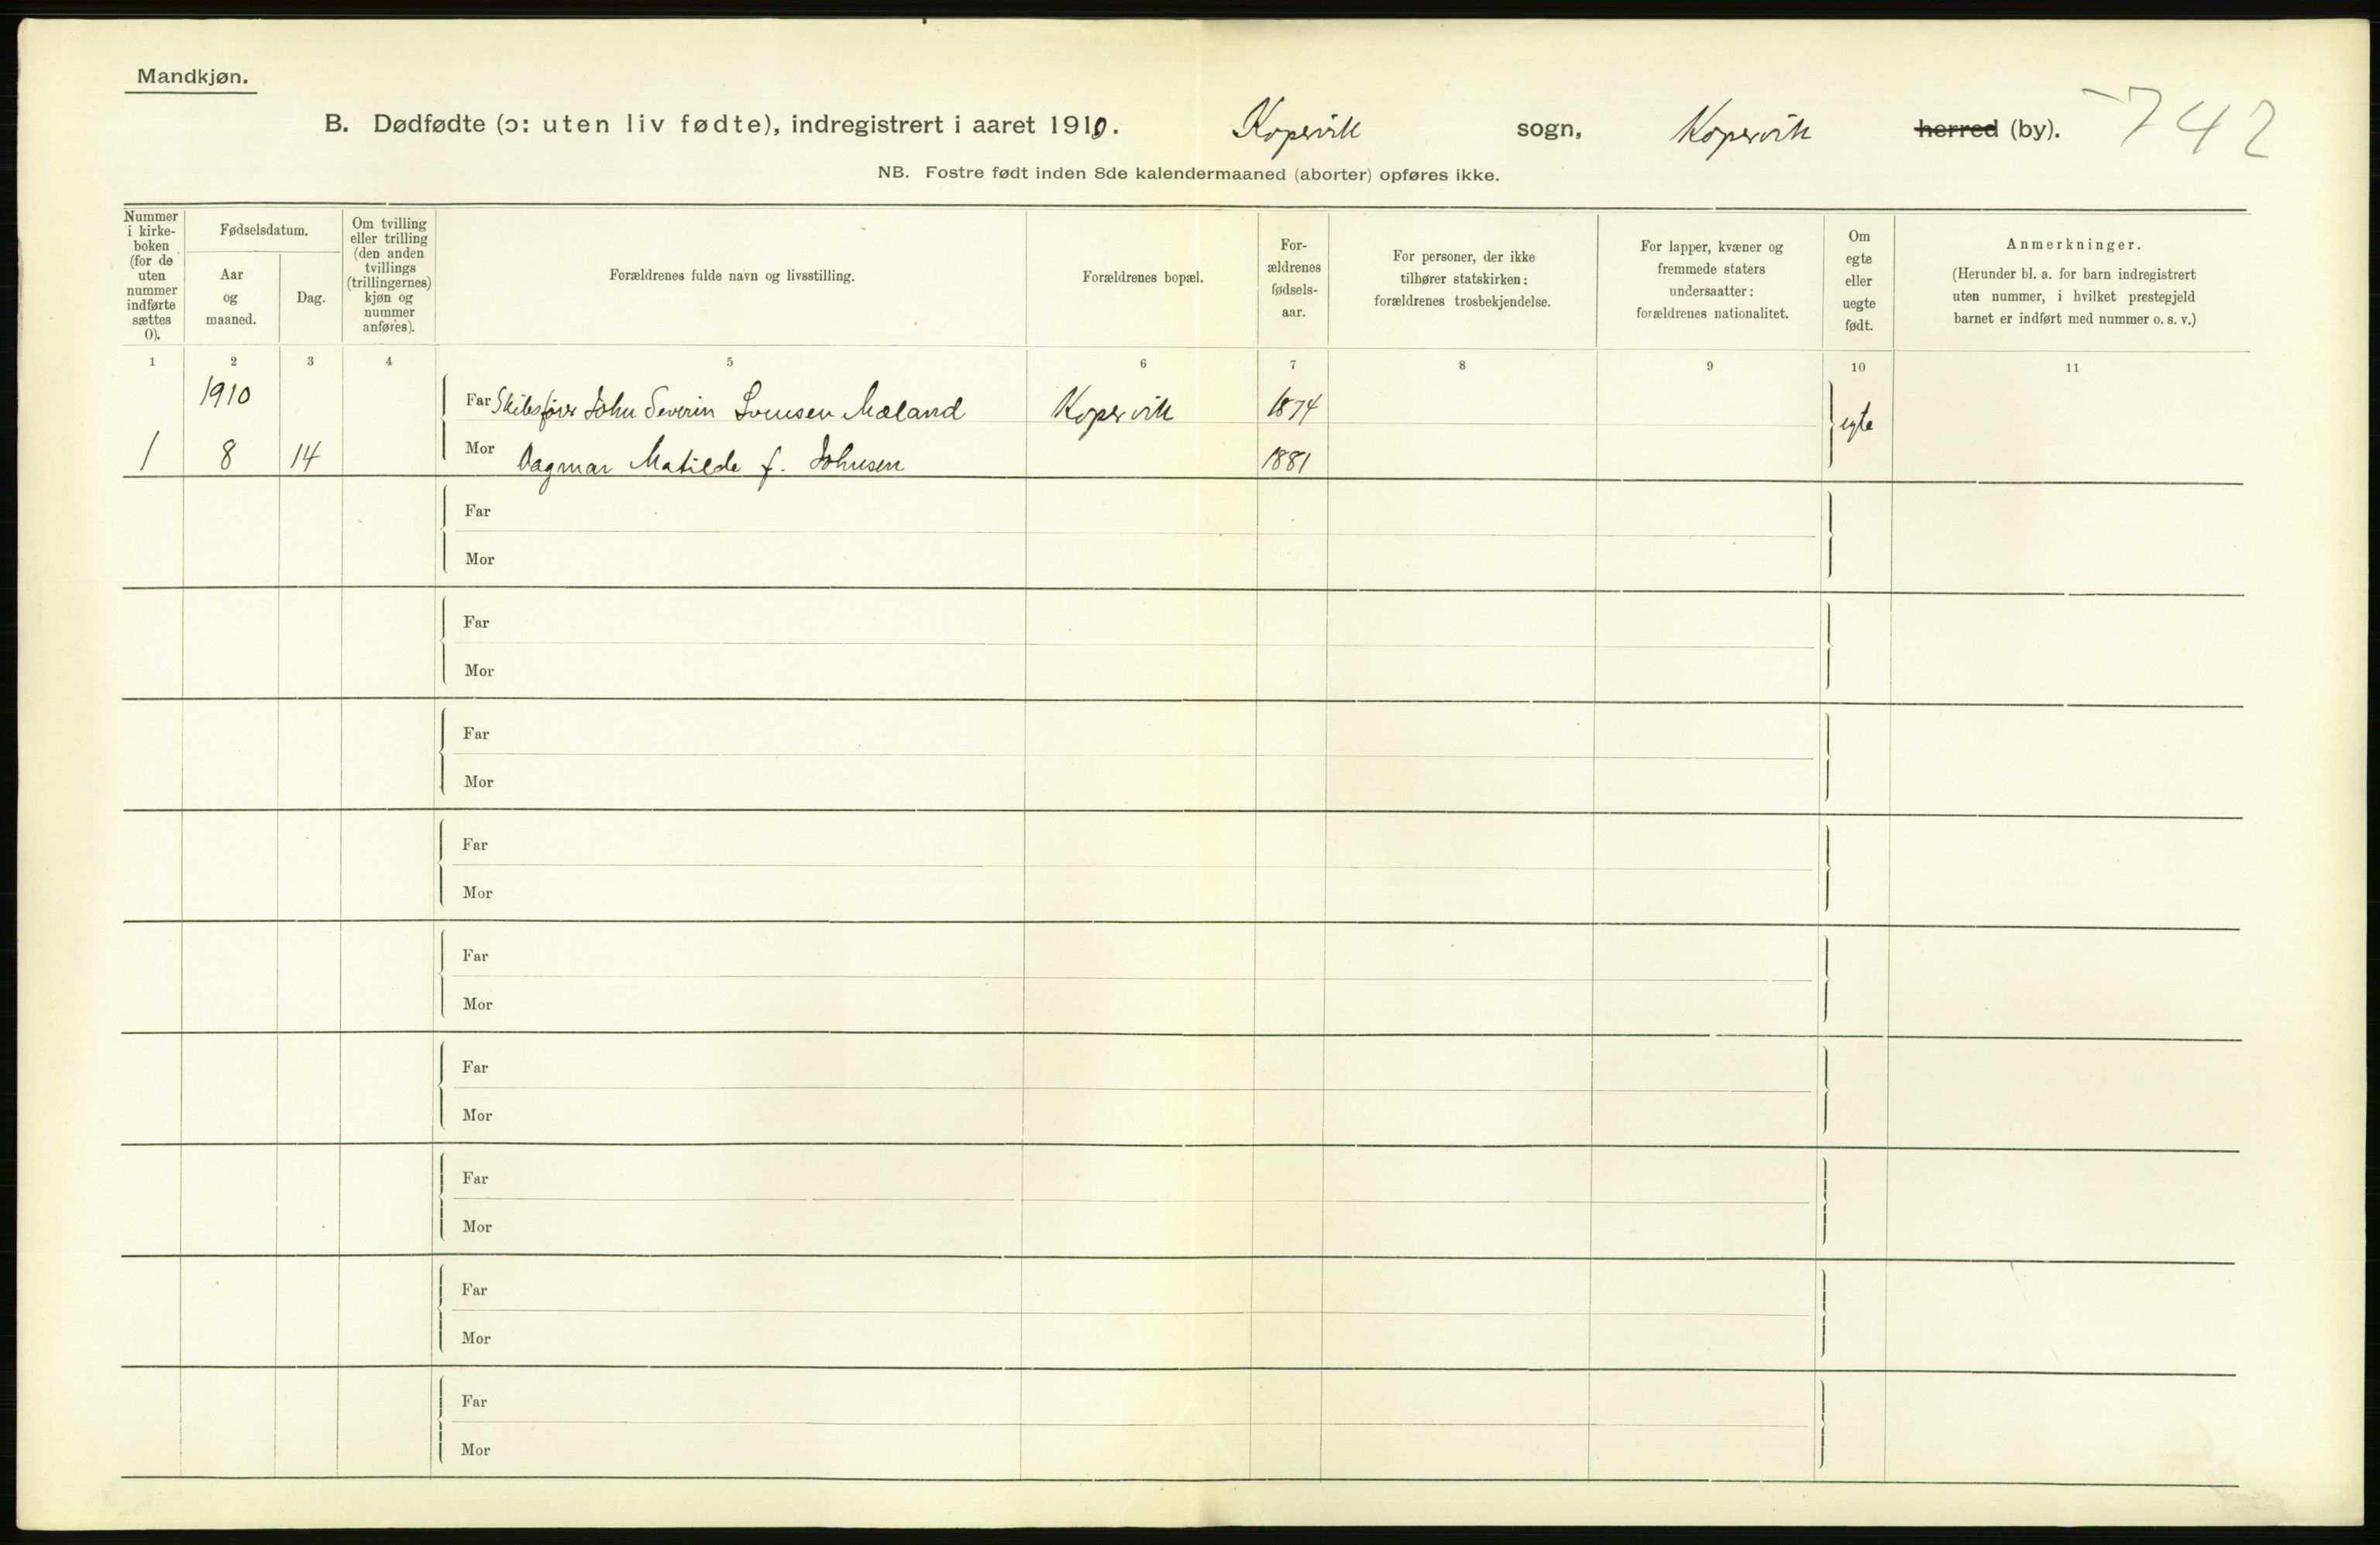 Mandkjøn.
B. Dødfødte (ɔ: uten liv fødte), indregistrert i aaret 1910. Kopervik sogn, Kopervik herred (by). 742
NB. Fostre født inden 8de kalendermaaned (aborter) opføres ikke.
Nummer i kirke-boken (for de uten nummer indførte sættes 0).
Fødselsdatum.
Aar og maaned.
Dag.
Om tvilling eller trilling (den anden tvillings (trillingernes) kjøn og nummer anføres).
Forældrenes fulde navn og livsstilling.
Forældrenes bopæl.
For-ældrenes fødsels-aar.
For personer, der ikke tilhører statskirken: forældrenes trosbekjendelse.
For lapper, kvæner og fremmede staters undersaatter: forældrenes nationalitet.
Om egte eller uegte født.
Anmerkninger.
(Herunder bl. a. for barn indregistrert uten nummer, i hvilket prestegjeld barnet er indført med nummer o. s. v.)
1 2 3 4 5 6 7 8 9 10 11
1910 Far Skibsfører John Severin Svensen Mæland Kopervik 1874 egte
1 8 14 Mor Dagmar Matilde f. Johnsen 1881
Far
Mor
Far
Mor
Far
Mor
Far
Mor
Far
Mor
Far
Mor
Far
Mor
Far
Mor
Far
Mor